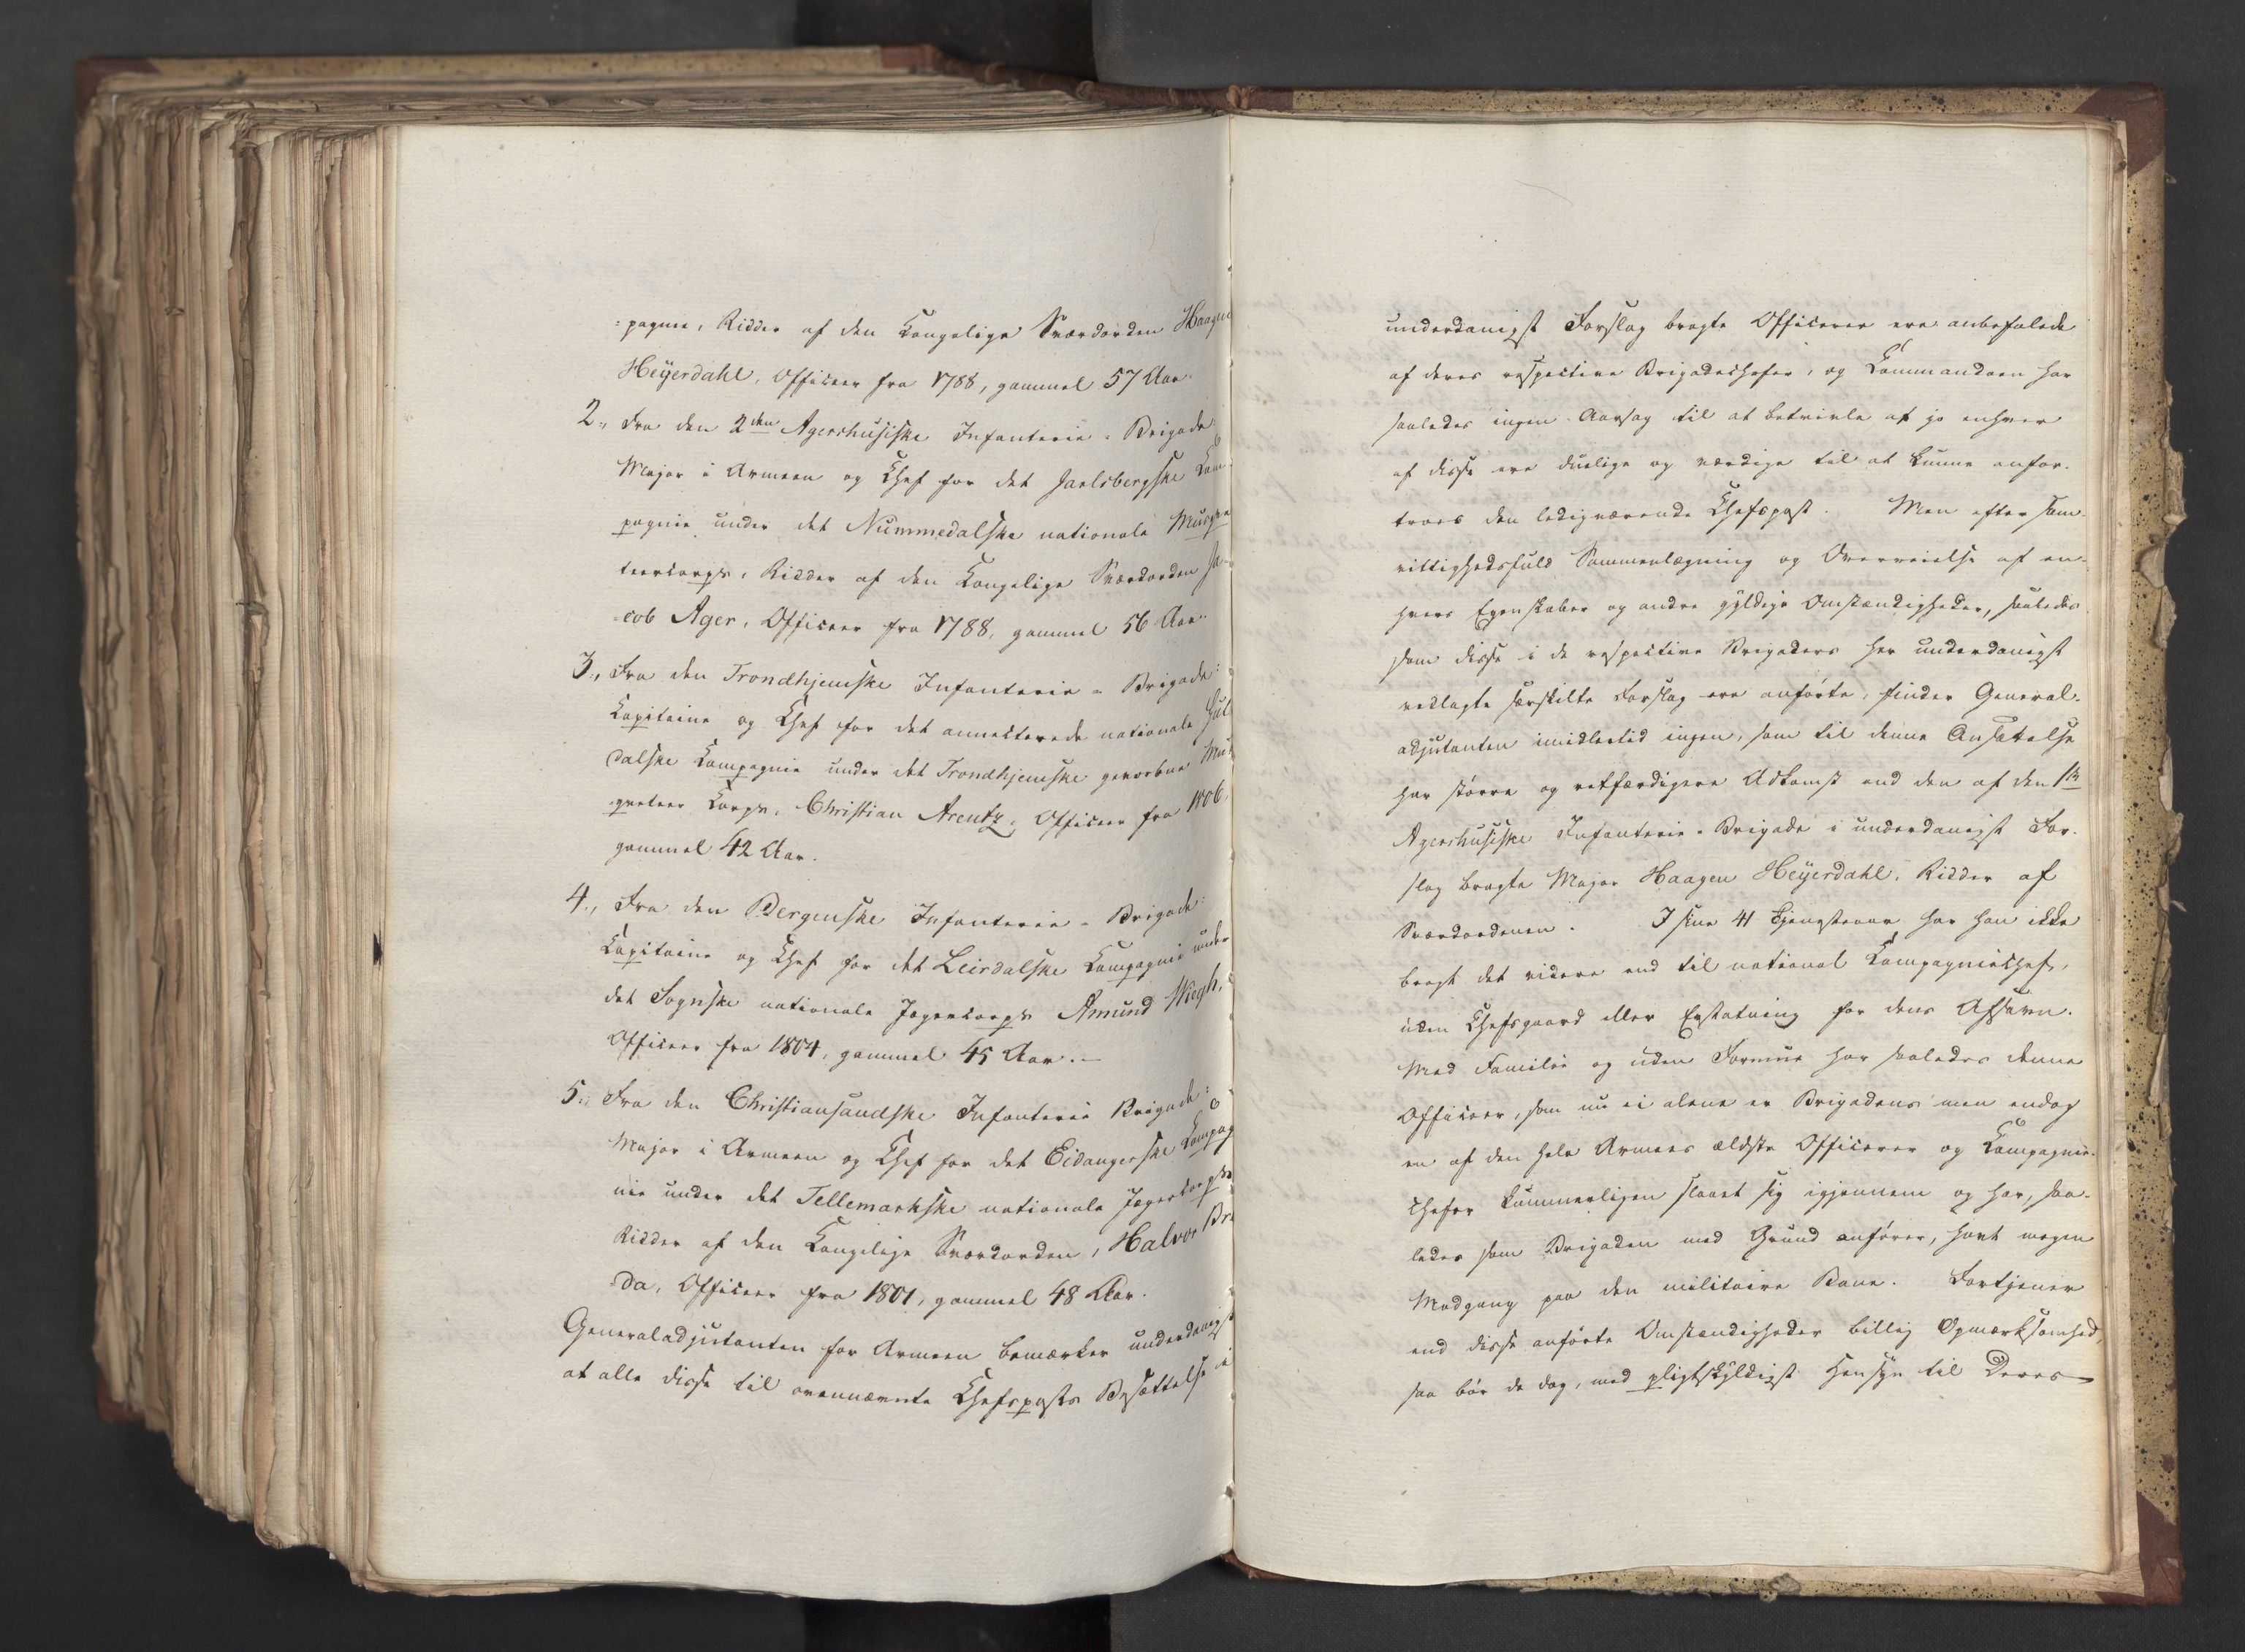 :pagnie, Ridder af den Kongelige Sværdorden Haagen
Heÿerdahl, Officeer fra 1788, gammel 57 Aar.
2., Fra den 2den Agershusiske Infanterie-Brigade:
Major i Armeen og Chef for det Jarlsbergske Kom-
pagnie under det Nummedalske nationale Musqve
teercorps, Ridder af den Kongelige Sværdorden Ja-
cob Ager, Officeer fra 1788, gammel 56 Aar.
3., Fra den Trondhjemske Infanterie-Brigade:
Kapitaine og Chef for det annecterede nationale
dalske Kompagnie under det Trondhjemske gevorbne Mus
qveteer Corps, Christian Arentz, Officeer fra 1806,
gammel 42 Aar.
4., Fra den Bergenske Infanterie-Brigade:
Kapitaine og Chef for det Leirdalske Kompagnie under
det Sognske nationale Jægercorps Amund Wiegh,
Officeer fra 1804, gammel 45 Aar.-
5., Fra den Christiansandske Infanterie Brigade:
Major i Armeen og Chef for det Eidangerske Kompag
nie under det Tellemarkske nationale Jægercorps
Ridder af den Kongelige Sværdorden, Halvor Bre
:da, Officeer fra 1801, gammel 48 Aar.
Generaladjutanten for Armeen bemærker underdanigst
at alle disse til ovennævnte Chefsposts Besættelse i
underdanigst Forslag bragte Officerer ere anbefalede
af deres respective Brigadechefer, og Kommandoen har
saaledes ingen Aarsag til at betvivle at jo enhver
af disse ere duelige og værdige til at kunne anfor-
troes den ledigværende Chefspost. Men efter sam-
vittighedsfuld Sammenlægning og Overveielse af en-
hvers Egenskaber og andre gyldige Omstændigheder, saaledes
som disse i de respective Brigaders her underdanigst
vedlagte særskilte Forslag ere anførte, finder General-
adjutanten imidlertid ingen, som til denne Ansættelse
har større og retfærdigere Adkomst end den af den 1te
Agershusiske Infanterie-Brigade i underdanigst For-
slag bragte Major Haagen Heÿerdahl, Ridder af
Sværdordenen. I sine 41 Tjenesteaar har han ikke
bragt det videre end til national Kompagniechef,
uden Chefsgaard eller Erstatning for dens Afsavn.
Med Familie og uden Formue har saaledes denne
Officeer, som nu ei alene er Brigadens men endog
en af den hele Armees ældste Officerer og Kompagnie-
chefer kummerligen slaaet sig igjennem og har, saa-
ledes som Brigaden med Grund anfører, havt megen
Modgang paa den militaire Bane. Fortjener
end disse anførte Omstændigheder billig Opmærksomhed,
saa bør de dog, med pligtskyldigst Hensyn til Deres